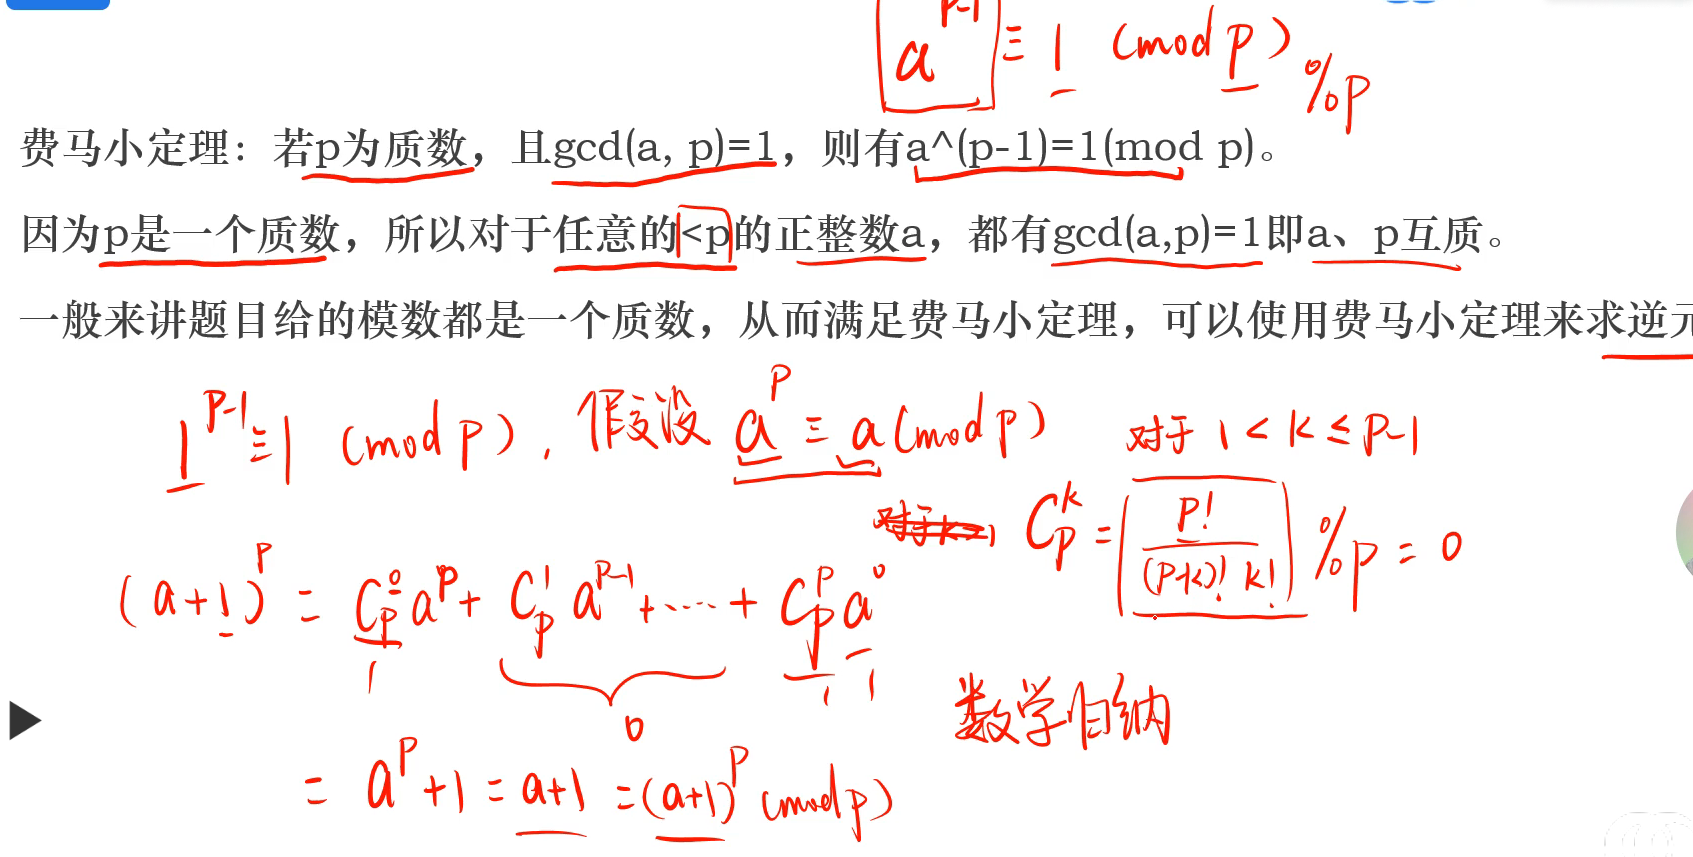 a^(p-1) ≡ 1 (mod p) %p
费马小定理：若p为质数，且gcd(a, p)=1，则有a^(p-1)=1(mod p)。
因为p是一个质数，所以对于任意的<p的正整数a，都有gcd(a,p)=1即a、p互质。
一般来讲题目给的模数都是一个质数，从而满足费马小定理，可以使用费马小定理来求逆元
1^(p-1) ≡ 1 (mod p), 假设 a^p ≡ a (mod p) 对于 1 < k ≤ p-1
对于k=1 C_p^k = p! / (p-k)! k! %p = 0
(a+1)^p = C_p^0 a^p + C_p^1 a^(p-1) + …… + C_p^p a^0
1 0 1 1
数学归纳
= a^p + 1 = a+1 = (a+1)^p (mod p)